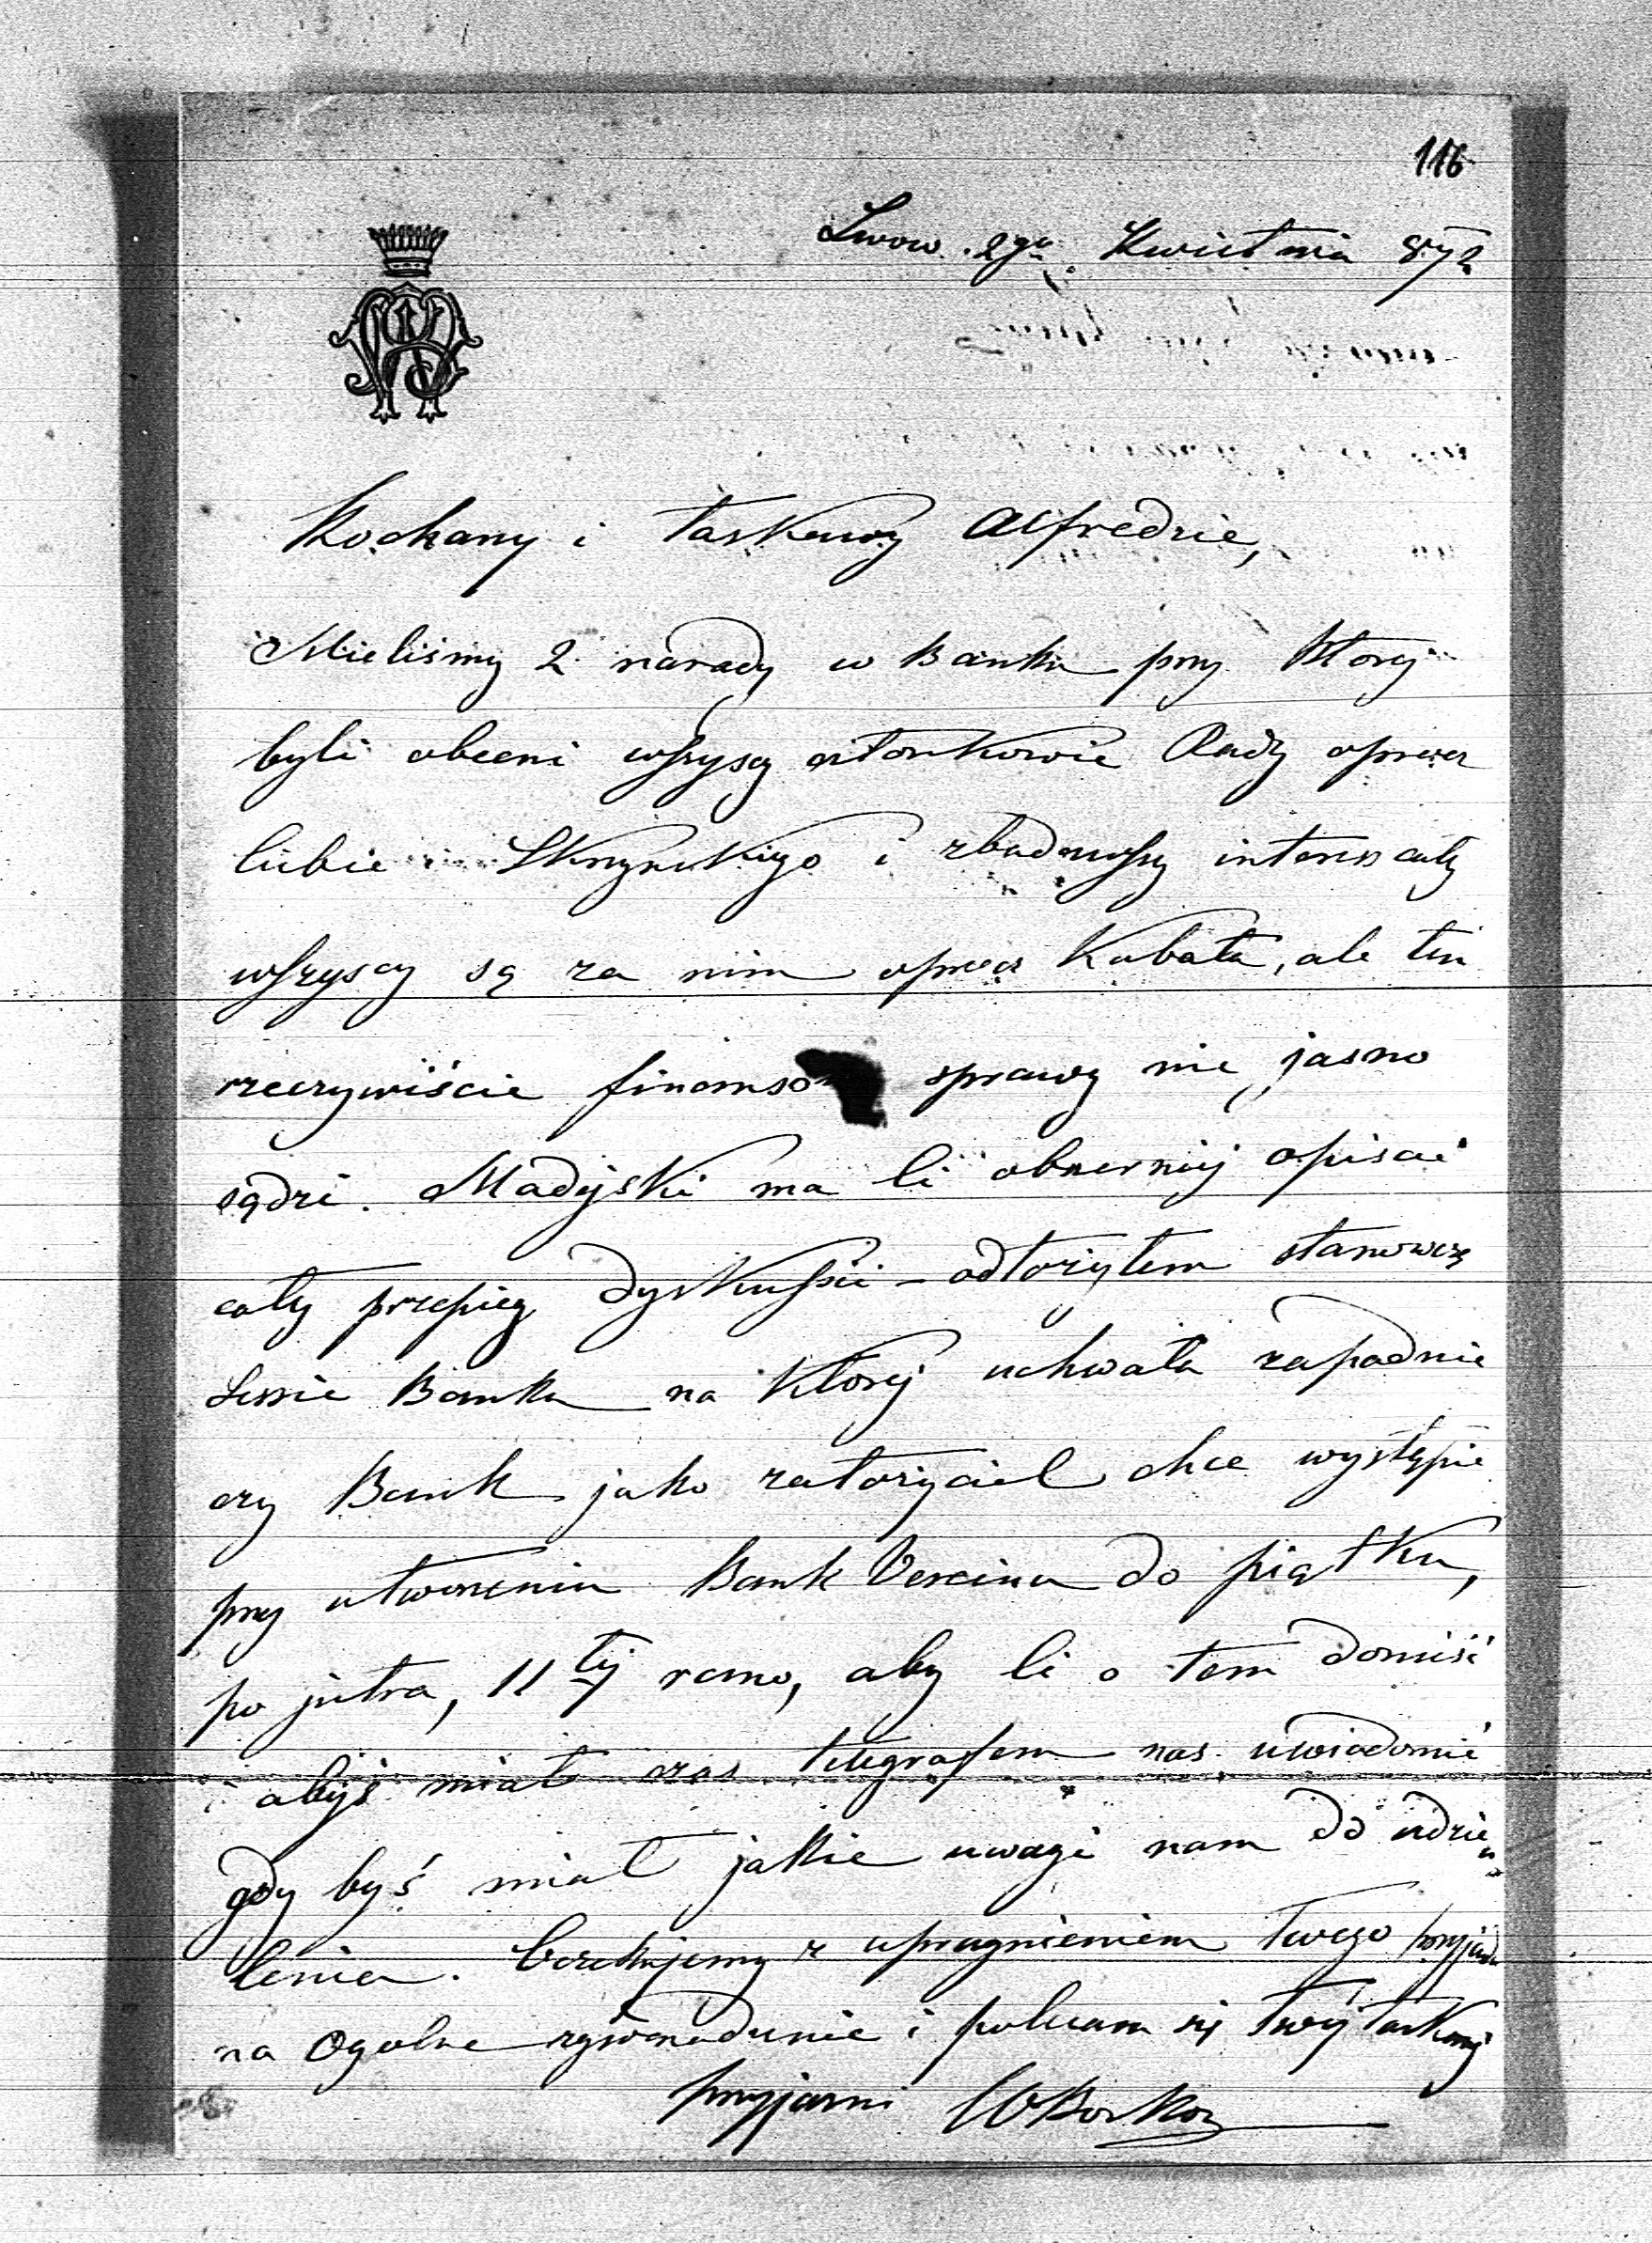 116
Lwow 2go Kwietnia 872
Kochany i łaskawy Alfredzie,
Mieliśmy 2 narady w Banku przy ktorej
byli obecni wszyscy członkowie Rady oprocz
Ciebie i Skrzynskiego i zbadawszy interess cały
wszyscy są za nim oprocz Kabata, ale ten
rzeczywiście sprawy nie jasno
sądzi. Madejski ma Ci obszerniej opisać
cały przepieg dyskussii – odłożyłem stanowczą
Sessie Banku na ktorej uchwała zapadnie
czy Bank jako założyciel chce wystąpić
przy utworzeniu Bank Vereinu do piątku,
po jutra, 11tej rano, aby Ci o tem donieść
i abyś miał czas telegrafem nas uwiadomić
gdy byś miał jakie uwagi nam do udzie
lenia. Oczekujemy z upragnieniem Twego przyjazdu
na Ogolne zgromadzenie i polecam się Twej łaskawej
przyjazni WBorkow